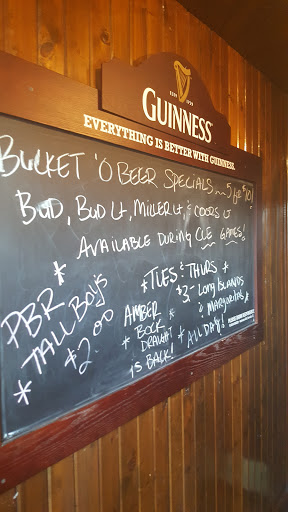 ESTD 1759
GUINNESS
EVERYTHING IS BETTER WITH GUINNESS.
BUCKET 'O BEER SPECIALS ~ 5 for $10!
BUD, BUD LT, MILLER LT, & COORS LT
AVAILABLE DURING CLE GAMES!
* TUES & THURS *
$3.- LONG ISLANDS
& MARGARITAS *
* ALL DAY!
* PBR
TALL BOYS
* $2.00
AMBER
* BOCK *
DRAUGHT
IS BACK!